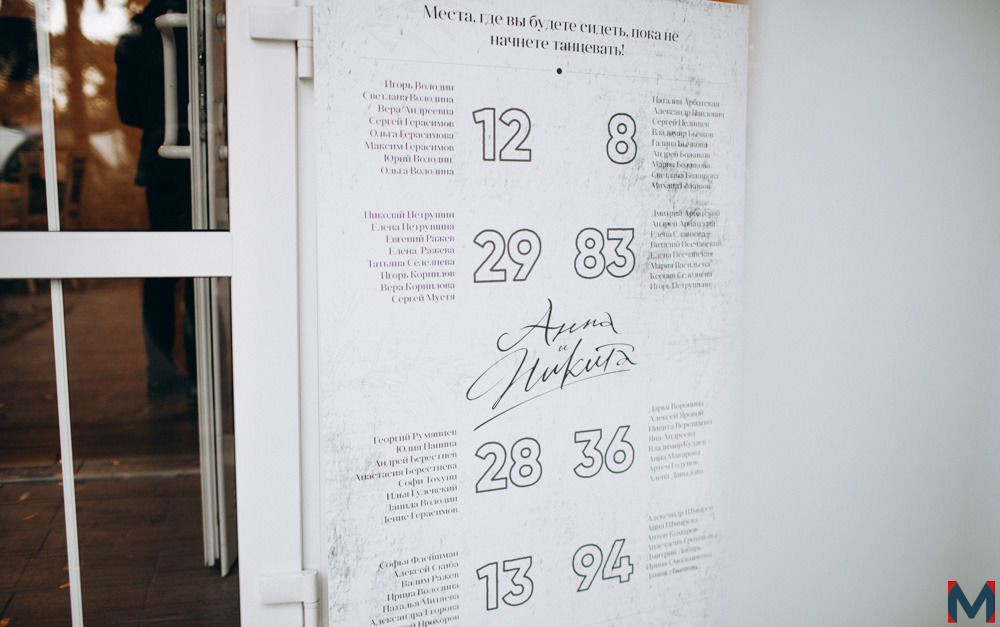 Места, где вы будете сидеть, пока не
начнете танцевать!
Игорь Володин
Светлана Володина
Вера Андреевна
Сергей Герасимов
Ольга Герасимова
Максим Герасимов
Юрий Володин
Ольга Володина
12
8
Наталия Арбатская
Александр Павлович
Сергей
Владимир Бычков
Галина Бычкова
Андрей
Мария
Светлана
Михаил
Николай Петрушин
Елена Петрушина
Евгений Ражев
Елена Ражева
Татьяна Селезнева
Игорь Корнилов
Вера Корнилова
Сергей Мустя
29
83
Дмитрий Арбатский
Андрей Арбатский
Елена
Виталий Песчанский
Елена Песчанская
Мария Васильева
Ксения Селезнева
Игорь Петрушин
Анна
и
Никита
Георгий Румянцев
Юлия Панина
Андрей Берестнев
Анастасия Берестнева
Софи Тохуни
Илья Гулевский
Данила Володин
Денис Герасимов
28
36
Дарья Воронина
Алексей Яровой
Никита
Яна Андреева
Владимир Кудаев
Анна Макарова
Артем Годунов
Алена Давыдова
Софья Флейшман
Алексей Скиба
Вадим Ражев
Ирина Володина
Наталья Митяева
Александра Егорова
Прохоров
13
94
Александр Шмарев
Анна Шмарева
Антон Комаров
Анастасия
Дмитрий
Ирина
M